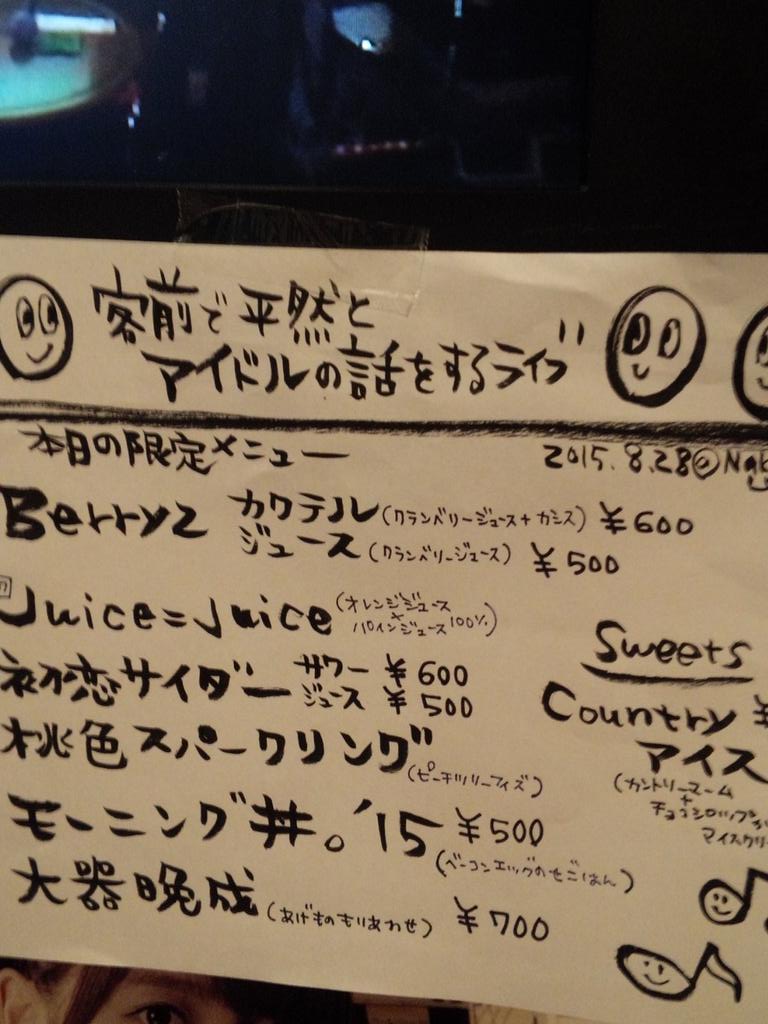 客前で平然と
アイドルの話をするライブ
本日の限定メニュー
2015.8.28@
Berryz カクテル(クランベリージュース+カシス) ¥600
ジュース(クランベリージュース) ¥500
Juice=Juice (オレンジジュース
+
パインジュース100%)
初恋サイダー サワー ¥600
ジュース ¥500
桃色スパークリング
(ピーチツリーフィズ)
モーニング丼。'15 ¥500
(ベーコンエッグのせごはん)
大器晩成(あげものもりあわせ) ¥700
Sweets
Country ¥
アイス
(カントリーマーム
+
チョコシロップ